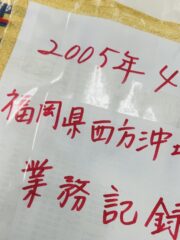 2005年4
福岡県西方沖
業務記録